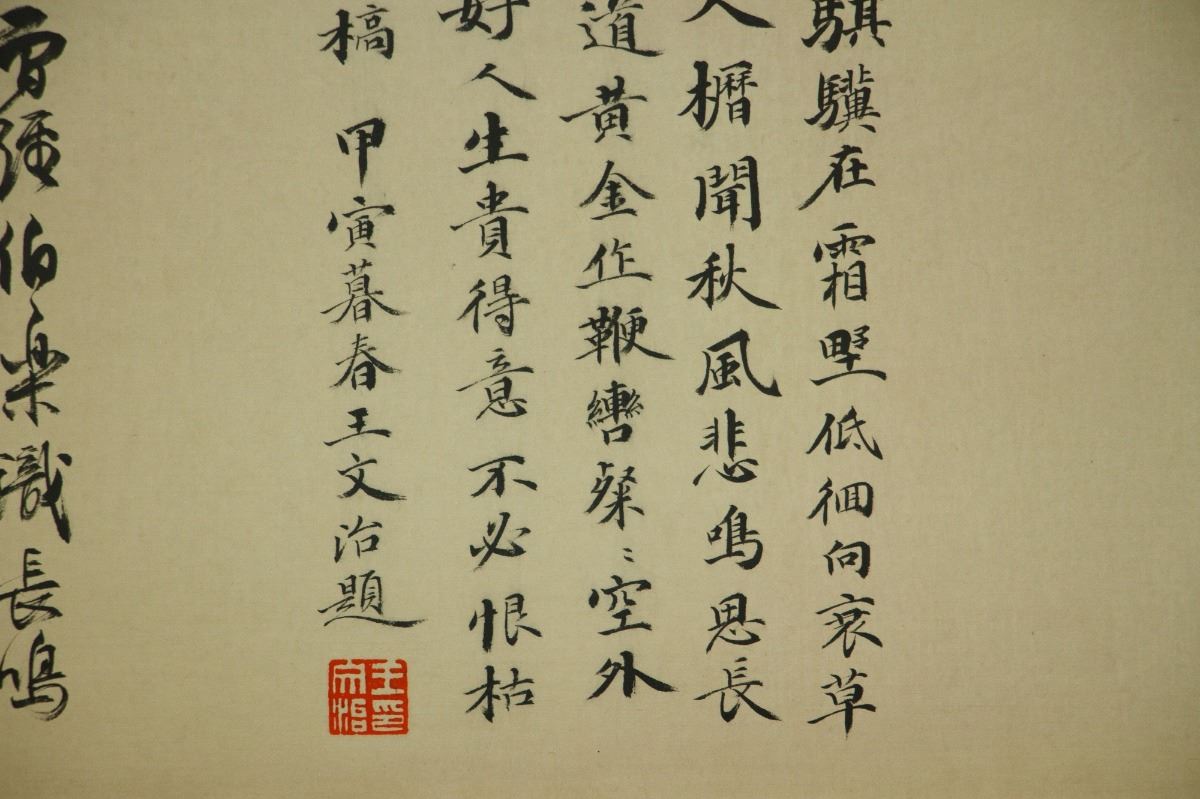 騏驥在霜墅低徊向衰草
人櫪聞秋風悲鳴思長
道黃金作鞭轡粲〻空外
好人生貴得意不必恨枯
槁 甲寅暮春王文治題
王文治印
曾經伯樂識長鳴